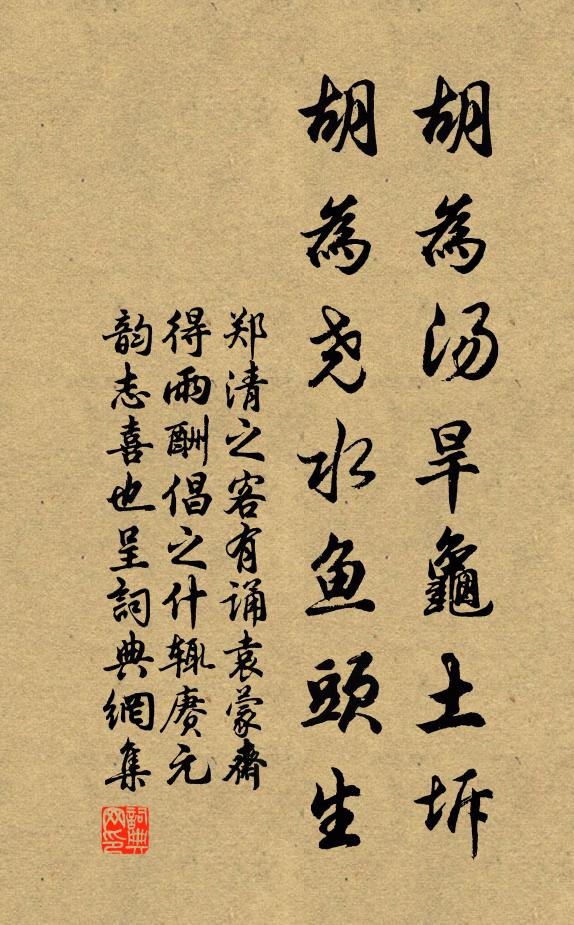 胡為汤旱龜土坼
胡為尧水鱼頭生
郑清之客有诵袁蒙齋
得雨酬倡之什辄赓元
韵志喜也呈詞典網集
詞典
网印